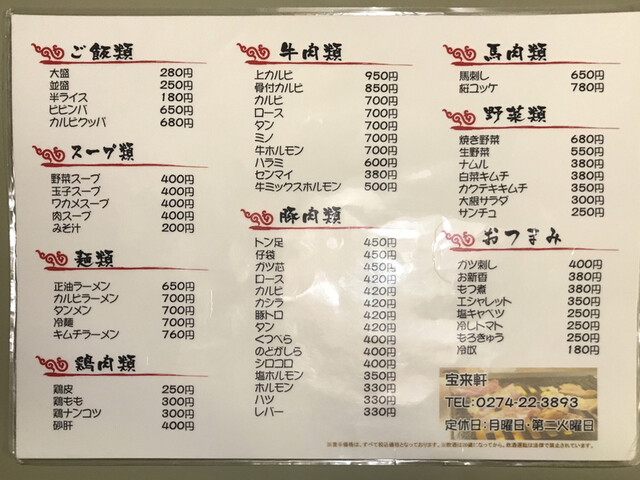 ご飯類
大盛 280円
並盛 250円
半ライス 180円
ビビンバ 650円
カルビクッパ 680円
スープ類
野菜スープ 400円
玉子スープ 400円
ワカメスープ 400円
肉スープ 400円
みそ汁 200円
麺類
正油ラーメン 650円
カルビラーメン 700円
タンメン 700円
冷麺 700円
キムチラーメン 760円
鶏肉類
鶏皮 250円
鶏もも 300円
鶏ナンコツ 300円
砂肝 400円
牛肉類
上カルビ 950円
骨付カルビ 850円
カルビ 700円
ロース 700円
タン 700円
ミノ 700円
牛ホルモン 700円
ハラミ 600円
センマイ 380円
牛ミックスホルモン 500円
豚肉類
トン足 450円
仔袋 450円
ガツ芯 450円
ロース 420円
カルビ 420円
カシラ 420円
豚トロ 420円
タン 420円
くつべら 400円
のどがしら 400円
シロコロ 400円
塩ホルモン 350円
ホルモン 330円
ハツ 330円
レバー 330円
馬肉類
馬刺し 650円
桜ユッケ 780円
野菜類
焼き野菜 680円
生野菜 550円
ナムル 380円
白菜キムチ 350円
カクテキキムチ 350円
大根サラダ 300円
サンチュ 250円
おつまみ
ガツ刺し 400円
お新香 380円
もつ煮 380円
エシャレット 350円
塩キャベツ 250円
冷しトマト 250円
もろきゅう 250円
冷奴 180円
宝来軒
TEL:0274-22-3893
定休日:月曜日・第二火曜日
※表示価格は、すべて税込価格となっております。※飲酒は20歳になってから。飲酒運転は法律で禁止されています。